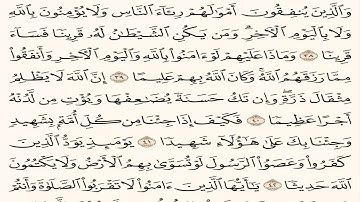 وَٱلَّذِينَ يُنفِقُونَ أَمْوَٰلَهُمْ رِئَآءَ ٱلنَّاسِ وَلَا يُؤْمِنُونَ بِٱللَّهِ
وَلَا بِٱلْيَوْمِ ٱلْأَخِرِ وَمَن يَكُنِ ٱلشَّيْطَٰنُ لَهُۥ قَرِينًا فَسَآءَ
قَرِينًا ٣٨ وَمَاذَا عَلَيْهِمْ لَوْ ءَامَنُوا۟ بِٱللَّهِ وَٱلْيَوْمِ ٱلْأَخِرِ وَأَنفَقُوا۟
مِمَّا رَزَقَهُمُ ٱللَّهُ وَكَانَ ٱللَّهُ بِهِمْ عَلِيمًا ٣٩ إِنَّ ٱللَّهَ لَا يَظْلِمُ
مِثْقَالَ ذَرَّةٍ وَإِن تَكُ حَسَنَةً يُضَٰعِفْهَا وَيُؤْتِ مِن لَّدُنْهُ
أَجْرًا عَظِيمًا ٤٠ فَكَيْفَ إِذَا جِئْنَا مِن كُلِّ أُمَّةٍۭ بِشَهِيدٍ
وَجِئْنَا بِكَ عَلَىٰ هَٰٓؤُلَآءِ شَهِيدًا ٤١ يَوْمَئِذٍ يَوَدُّ ٱلَّذِينَ
كَفَرُوا۟ وَعَصَوُا۟ ٱلرَّسُولَ لَوْ تُسَوَّىٰ بِهِمُ ٱلْأَرْضُ وَلَا يَكْتُمُونَ
ٱللَّهَ حَدِيثًا ٤٢ يَٰٓأَيُّهَا ٱلَّذِينَ ءَامَنُوا۟ لَا تَقْرَبُوا۟ ٱلصَّلَوٰةَ وَأَنتُمْ